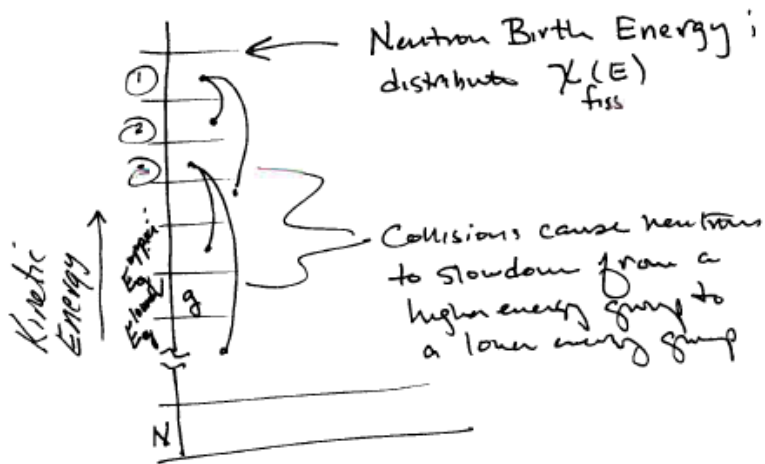 Neutron Birth Energy ;
distribute χ(E)
fiss
①
②
③
Kinetic
Energy
E upper
g
E lower
g
g
Collisions cause neutrons
to slowdown from a
higher energy group to
a lower energy group
N